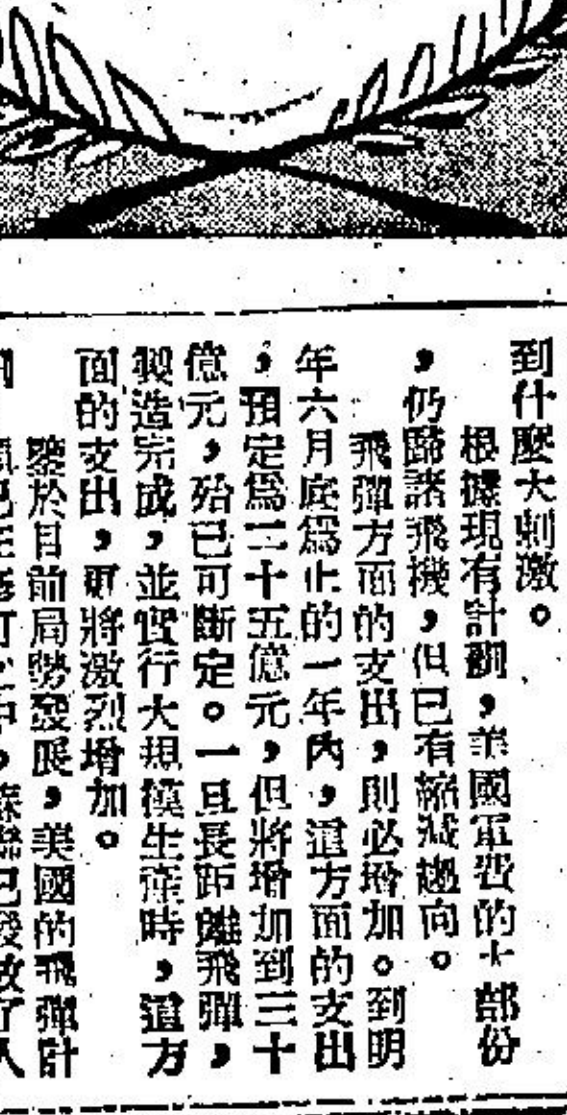 到什麼大刺激。
根據現有計劃,美國軍費的大部份
,仍歸諸飛機,但已有縮減趨向。
飛彈方面的支出,則必增加。到明
年六月底爲止的一年內,這方面的支出
,預定爲二十五億元,但將增加到三十
億元,殆已可斷定。一旦長距離飛彈,
製造完成,並實行大規模生產時,這方
面的支出,更將激烈增加。
鑒於目前局勢發展,美國的飛彈計